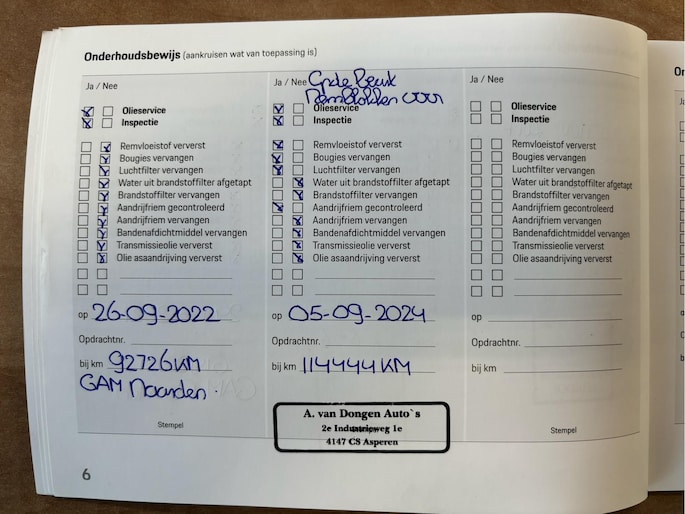 Onderhoudsbewijs (aankruisen wat van toepassing is)
Ja / Nee
Olieservice
Inspectie
Remvloeistof ververst
Bougies vervangen
Luchtfilter vervangen
Water uit brandstoffilter afgetapt
Brandstoffilter vervangen
Aandrijfriem gecontroleerd
Aandrijfriem vervangen
Bandenafdichtmiddel vervangen
Transmissieolie ververst
Olie asaandrijving ververst
op 26-09-2022
Opdrachtnr.
bij km 92726 KM
GAM Naarden.
Stempel
Ja / Nee Grote Beurt
Remblokken voor
Olieservice
Inspectie
Remvloeistof ververst
Bougies vervangen
Luchtfilter vervangen
Water uit brandstoffilter afgetapt
Brandstoffilter vervangen
Aandrijfriem gecontroleerd
Aandrijfriem vervangen
Bandenafdichtmiddel vervangen
Transmissieolie ververst
Olie asaandrijving ververst
op 05-09-2024
Opdrachtnr.
bij km 114444 KM
A. van Dongen Auto`s
2e Industrieweg 1e
4147 CS Asperen
Ja / Nee
Olieservice
Inspectie
Remvloeistof ververst
Bougies vervangen
Luchtfilter vervangen
Water uit brandstoffilter afgetapt
Brandstoffilter vervangen
Aandrijfriem gecontroleerd
Aandrijfriem vervangen
Bandenafdichtmiddel vervangen
Transmissieolie ververst
Olie asaandrijving ververst
op
Opdrachtnr.
bij km
Stempel
6